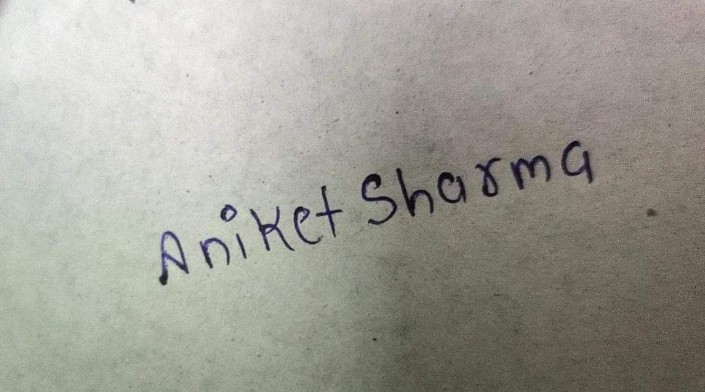 Aniket Sharma